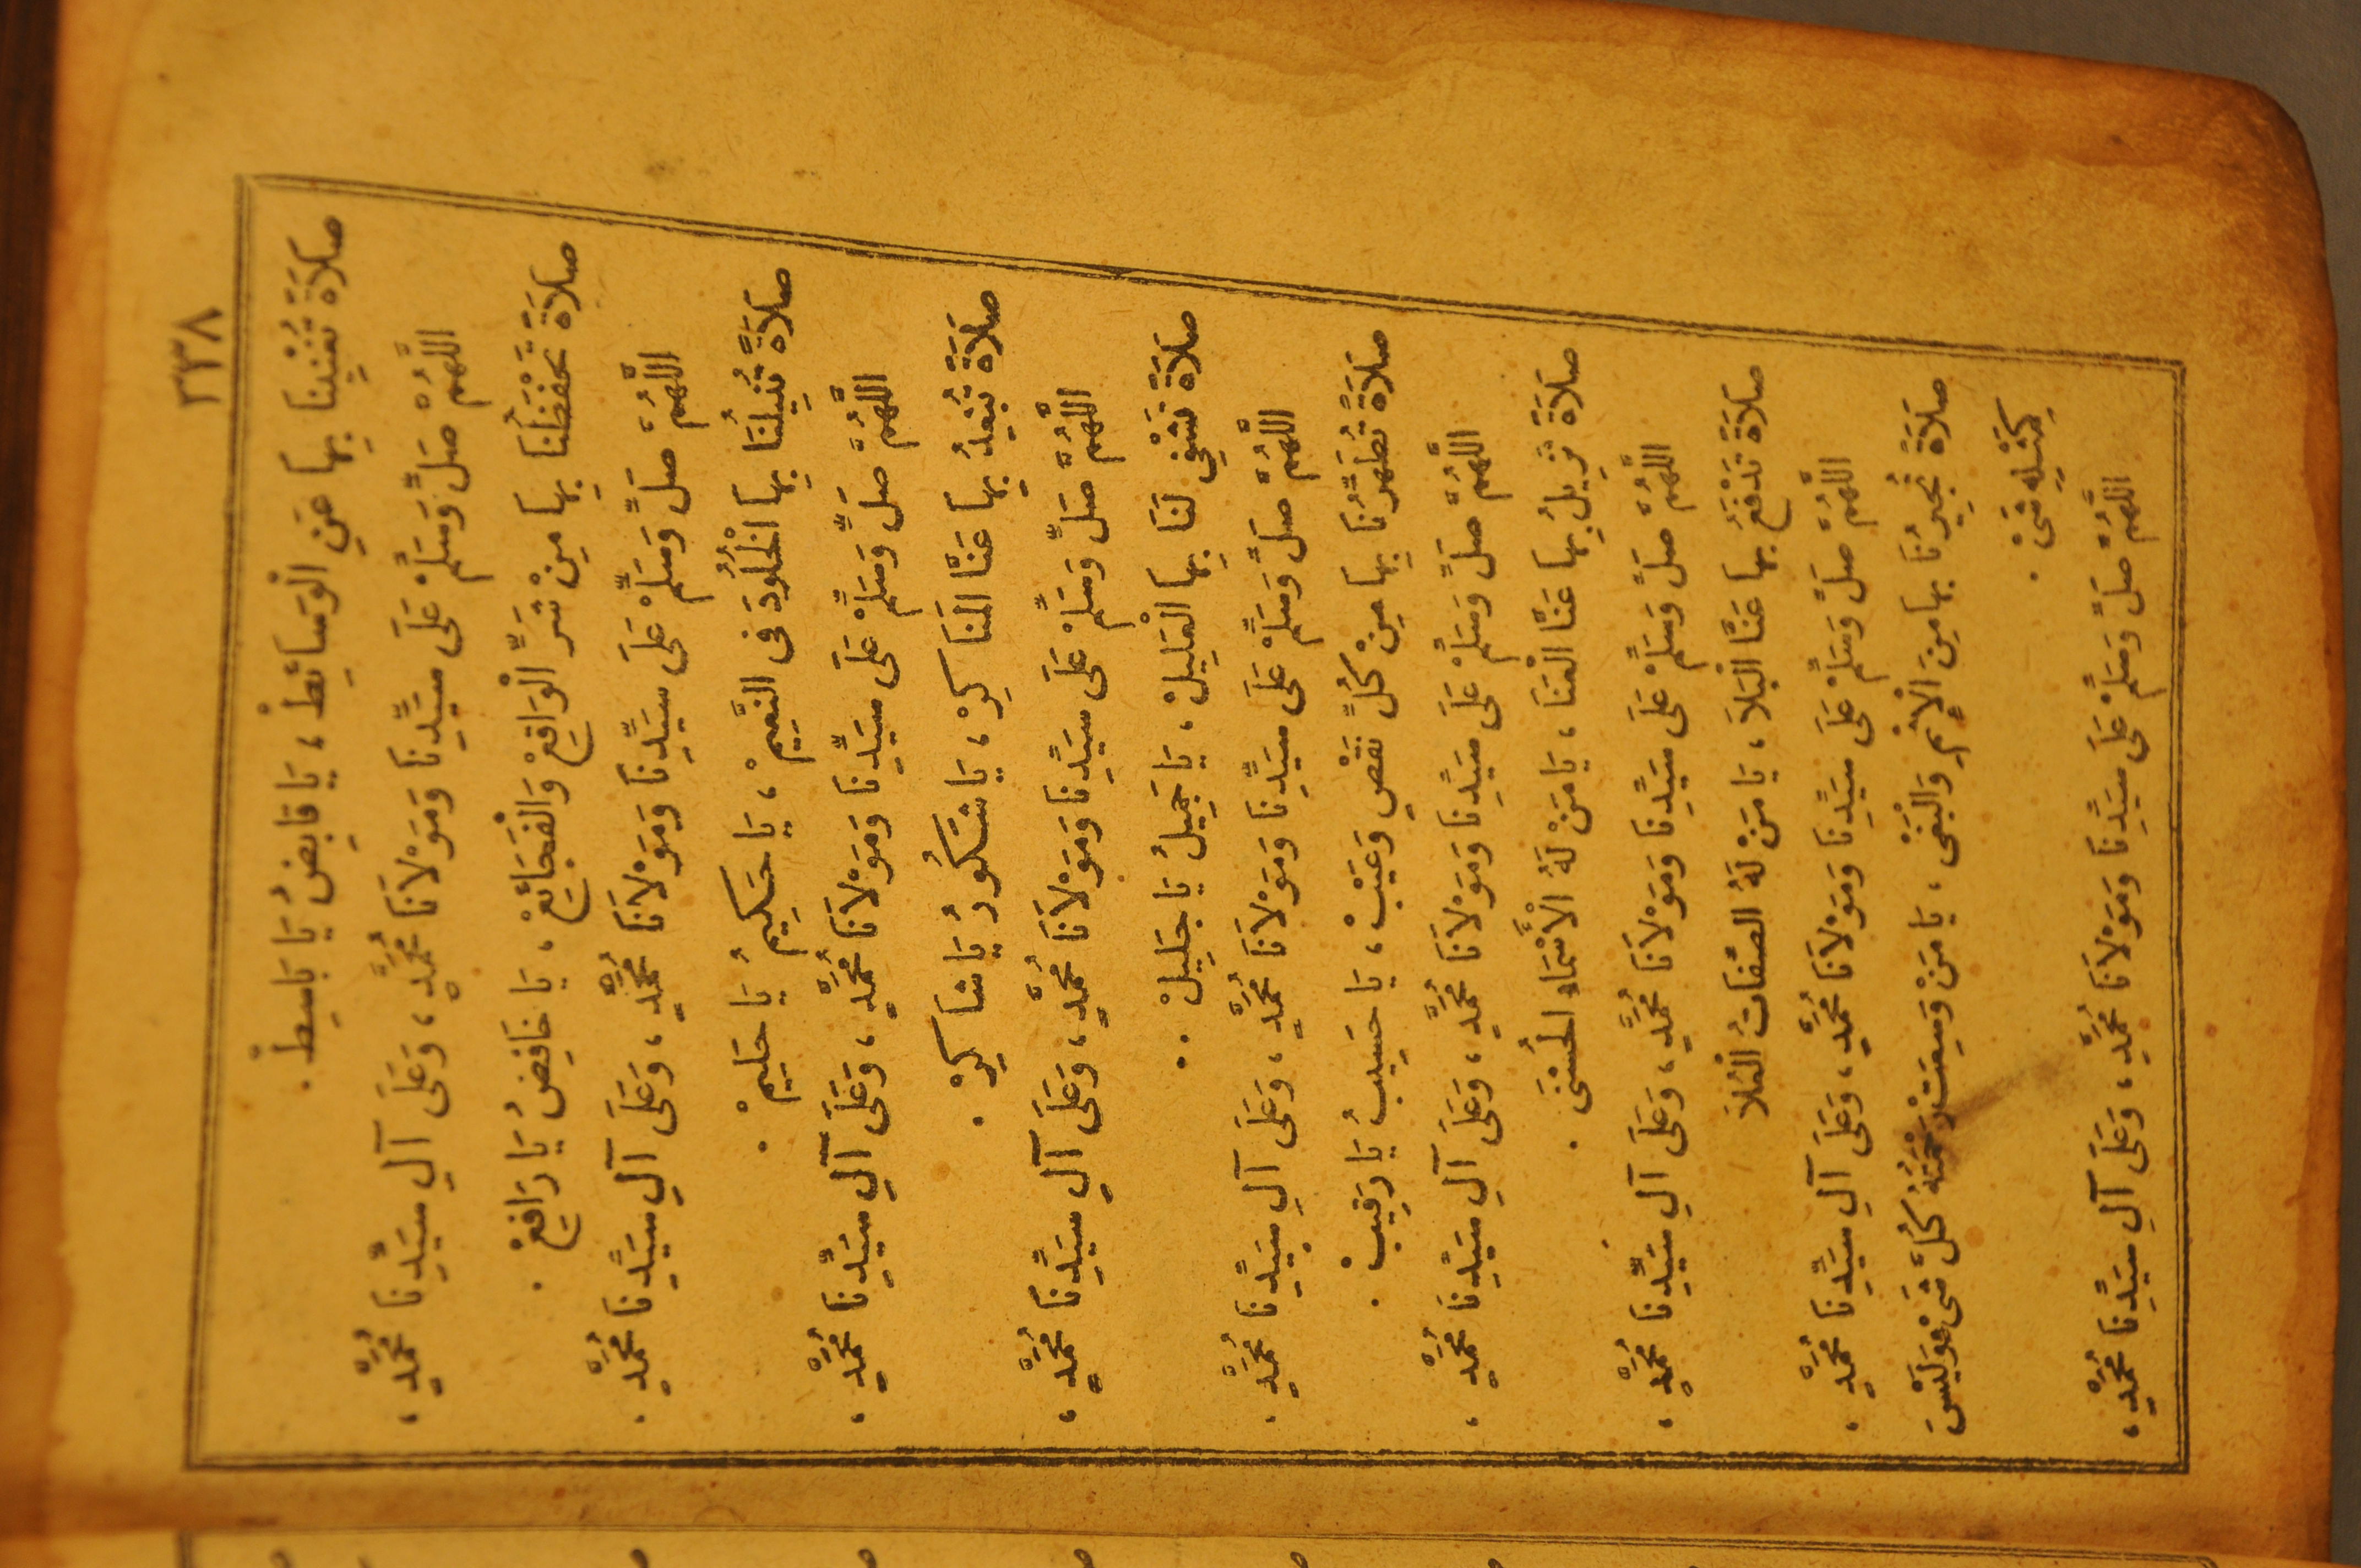 ٣٣٨
صَلَاةً تُغْنِينَا بِهَا عَنِ الْوَسَائِطْ، يَا قَابِضُ يَا بَاسِطْ.
اللَّهُمَّ صَلِّ وَسَلِّمْ عَلَى سَيِّدِنَا وَمَوْلَانَا مُحَمَّدٍ، وَعَلَى آلِ سَيِّدِنَا مُحَمَّدٍ،
صَلَاةً تَحْفَظُنَا بِهَا مِنْ شَرِّ الْوَاقِعْ وَالْفَجَائِعْ، يَا خَافِضُ يَا رَافِعْ.
اللَّهُمَّ صَلِّ وَسَلِّمْ عَلَى سَيِّدِنَا وَمَوْلَانَا مُحَمَّدٍ، وَعَلَى آلِ سَيِّدِنَا مُحَمَّدٍ.
صَلَاةً تُنِيلُنَا بِهَا الْخُلُودَ فِى النَّعِيمْ، يَا حَكِيمُ يَا حَلِيمْ.
اللَّهُمَّ صَلِّ وَسَلِّمْ عَلَى سَيِّدِنَا وَمَوْلَانَا مُحَمَّدٍ، وَعَلَى آلِ سَيِّدِنَا مُحَمَّدٍ.
صَلَاةً تُبْعِدُ بِهَا عَنَّا الْمَنَاكِرْ، يَا شَكُورُ يَا شَاكِرْ.
اللَّهُمَّ صَلِّ وَسَلِّمْ عَلَى سَيِّدِنَا وَمَوْلَانَا مُحَمَّدٍ، وَعَلَى آلِ سَيِّدِنَا مُحَمَّدٍ،
صَلَاةً تَشْفِي لَنَا بِهَا الْعَلِيلْ، يَا جَمِيلُ يَا جَلِيلْ..
اللَّهُمَّ صَلِّ وَسَلِّمْ عَلَى سَيِّدِنَا وَمَوْلَانَا مُحَمَّدٍ، وَعَلَى آلِ سَيِّدِنَا مُحَمَّدٍ.
صَلَاةً تُطَهِّرُنَا بِهَا مِنْ كُلِّ نَقْصٍ وَعَيْبْ، يَا حَسِيبُ يَا رَقِيبْ.
اللَّهُمَّ صَلِّ وَسَلِّمْ عَلَى سَيِّدِنَا وَمَوْلَانَا مُحَمَّدٍ، وَعَلَى آلِ سَيِّدِنَا مُحَمَّدٍ،
صَلَاةً تُزِيلُ بِهَا عَنَّا الْعَنَا، يَا مَنْ لَهُ الْأَسْمَاءُ الْحُسْنَى.
اللَّهُمَّ صَلِّ وَسَلِّمْ عَلَى سَيِّدِنَا وَمَوْلَانَا مُحَمَّدٍ، وَعَلَى آلِ سَيِّدِنَا مُحَمَّدٍ،
صَلَاةً تَدْفَعُ بِهَا عَنَّا الْبَلَا، يَا مَنْ لَهُ الصِّفَاتُ الْعُلَا
اللَّهُمَّ صَلِّ وَسَلِّمْ عَلَى سَيِّدِنَا وَمَوْلَانَا مُحَمَّدٍ، وَعَلَى آلِ سَيِّدِنَا مُحَمَّدٍ،
صَلَاةً تُجِيرُنَا بِهَا مِنَ الْإِثْمِ وَالْبَغْى، يَا مَنْ وَسِعَتْ رَحْمَتُهُ كُلَّ شَىْءٍ وَلَيْسَ
كَمِثْلِهِ شَىْ.
اللَّهُمَّ صَلِّ وَسَلِّمْ عَلَى سَيِّدِنَا وَمَوْلَانَا مُحَمَّدٍ، وَعَلَى آلِ سَيِّدِنَا مُحَمَّدٍ،